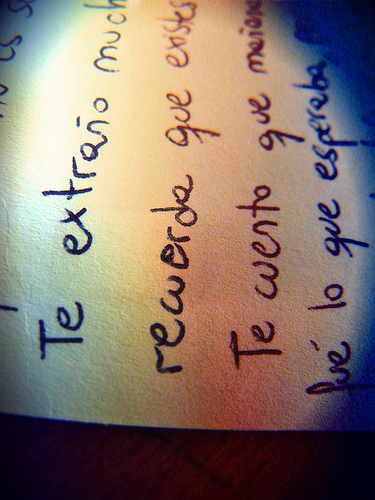 Te extraño much
recuerda que existe
Te cuento que
fué lo que esperaba